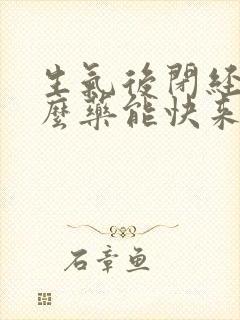 生氣後閉經
麼藥能快來
石章鱼